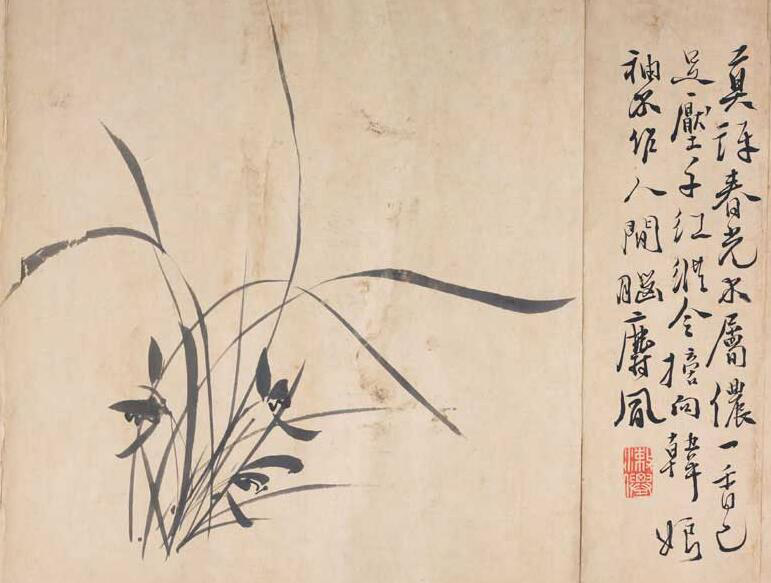 莫訝春光不屬儂一香已
足壓千紅縱令摘向韓娘
袖不作人間腦麝風
漱僊